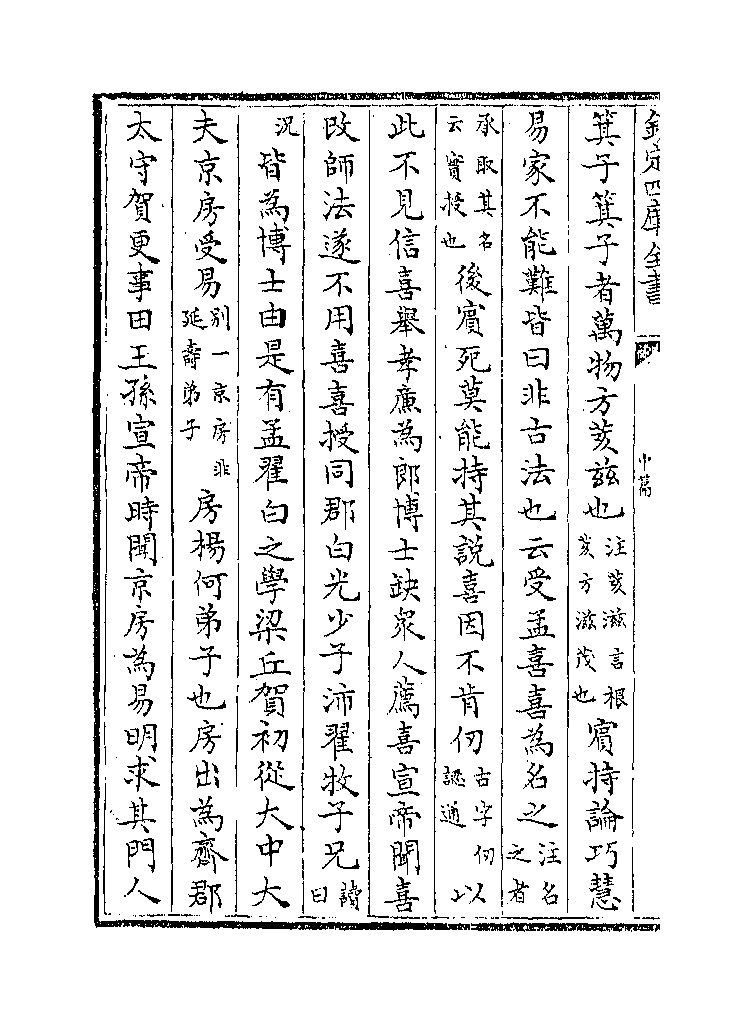 欽定四庫全書
中篇
箕子箕子者萬物方荄兹也注荄滋言根荄方滋茂也賓持論巧慧
易家不能難皆曰非古法也云受孟喜喜為名之注名之者
承取其名云實授也後賓死莫能持其說喜因不肯仞古字仞認通以
此不見信喜舉孝廉為郎博士缺衆人薦喜宣帝聞喜
改師法遂不用喜喜授同郡白光少子沛翟牧子兄讀曰
況皆為博士由是有孟翟白之學梁丘賀初從大中大
夫京房受易别一京房非延壽弟子房楊何弟子也房出為齊郡
太守賀更事田王孫宣帝時聞京房為易明求其門人